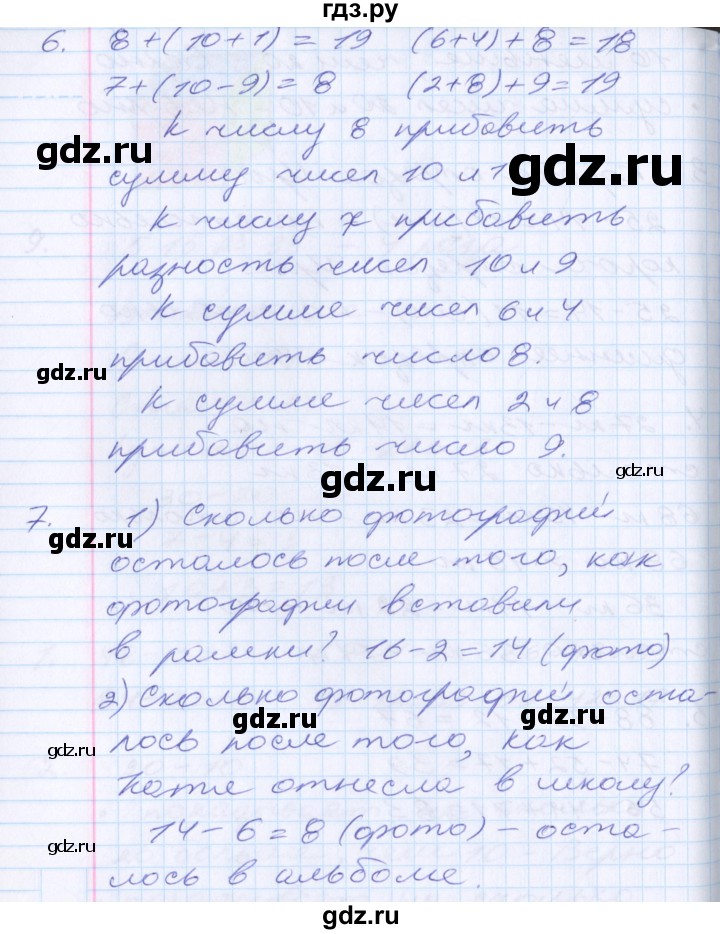 гдз.ру
6. 8+(10+1) = 19 (6+4)+8=18
7+(10-9)=8 (2+8)+9=19
К числу 8 прибавить
gdz.ru gdz.ru
сумму чисел 10 и 1
К числу х прибавить
разность чисел 10 и 9
К сумме чисел 6 и 4
прибавить число 8.
gdz.ru gdz.ru
К сумме чисел 2 и 8
прибавить число 9.
gdz.ru gdz.ru
7. 1) Сколько фотографий
gdz.ru gdz.ru
осталось после того, как
фотографии вставили
в рамки? 16-2=14 (фото)
2) Сколько фотографий оста-
gdz.ru gdz.ru
лось после того, как
gdz.ru
Катя отнесла в школу?
14-6=8 (фото) - оста-
gdz.ru gdz.ru
лось в альбоме.
gdz.ru